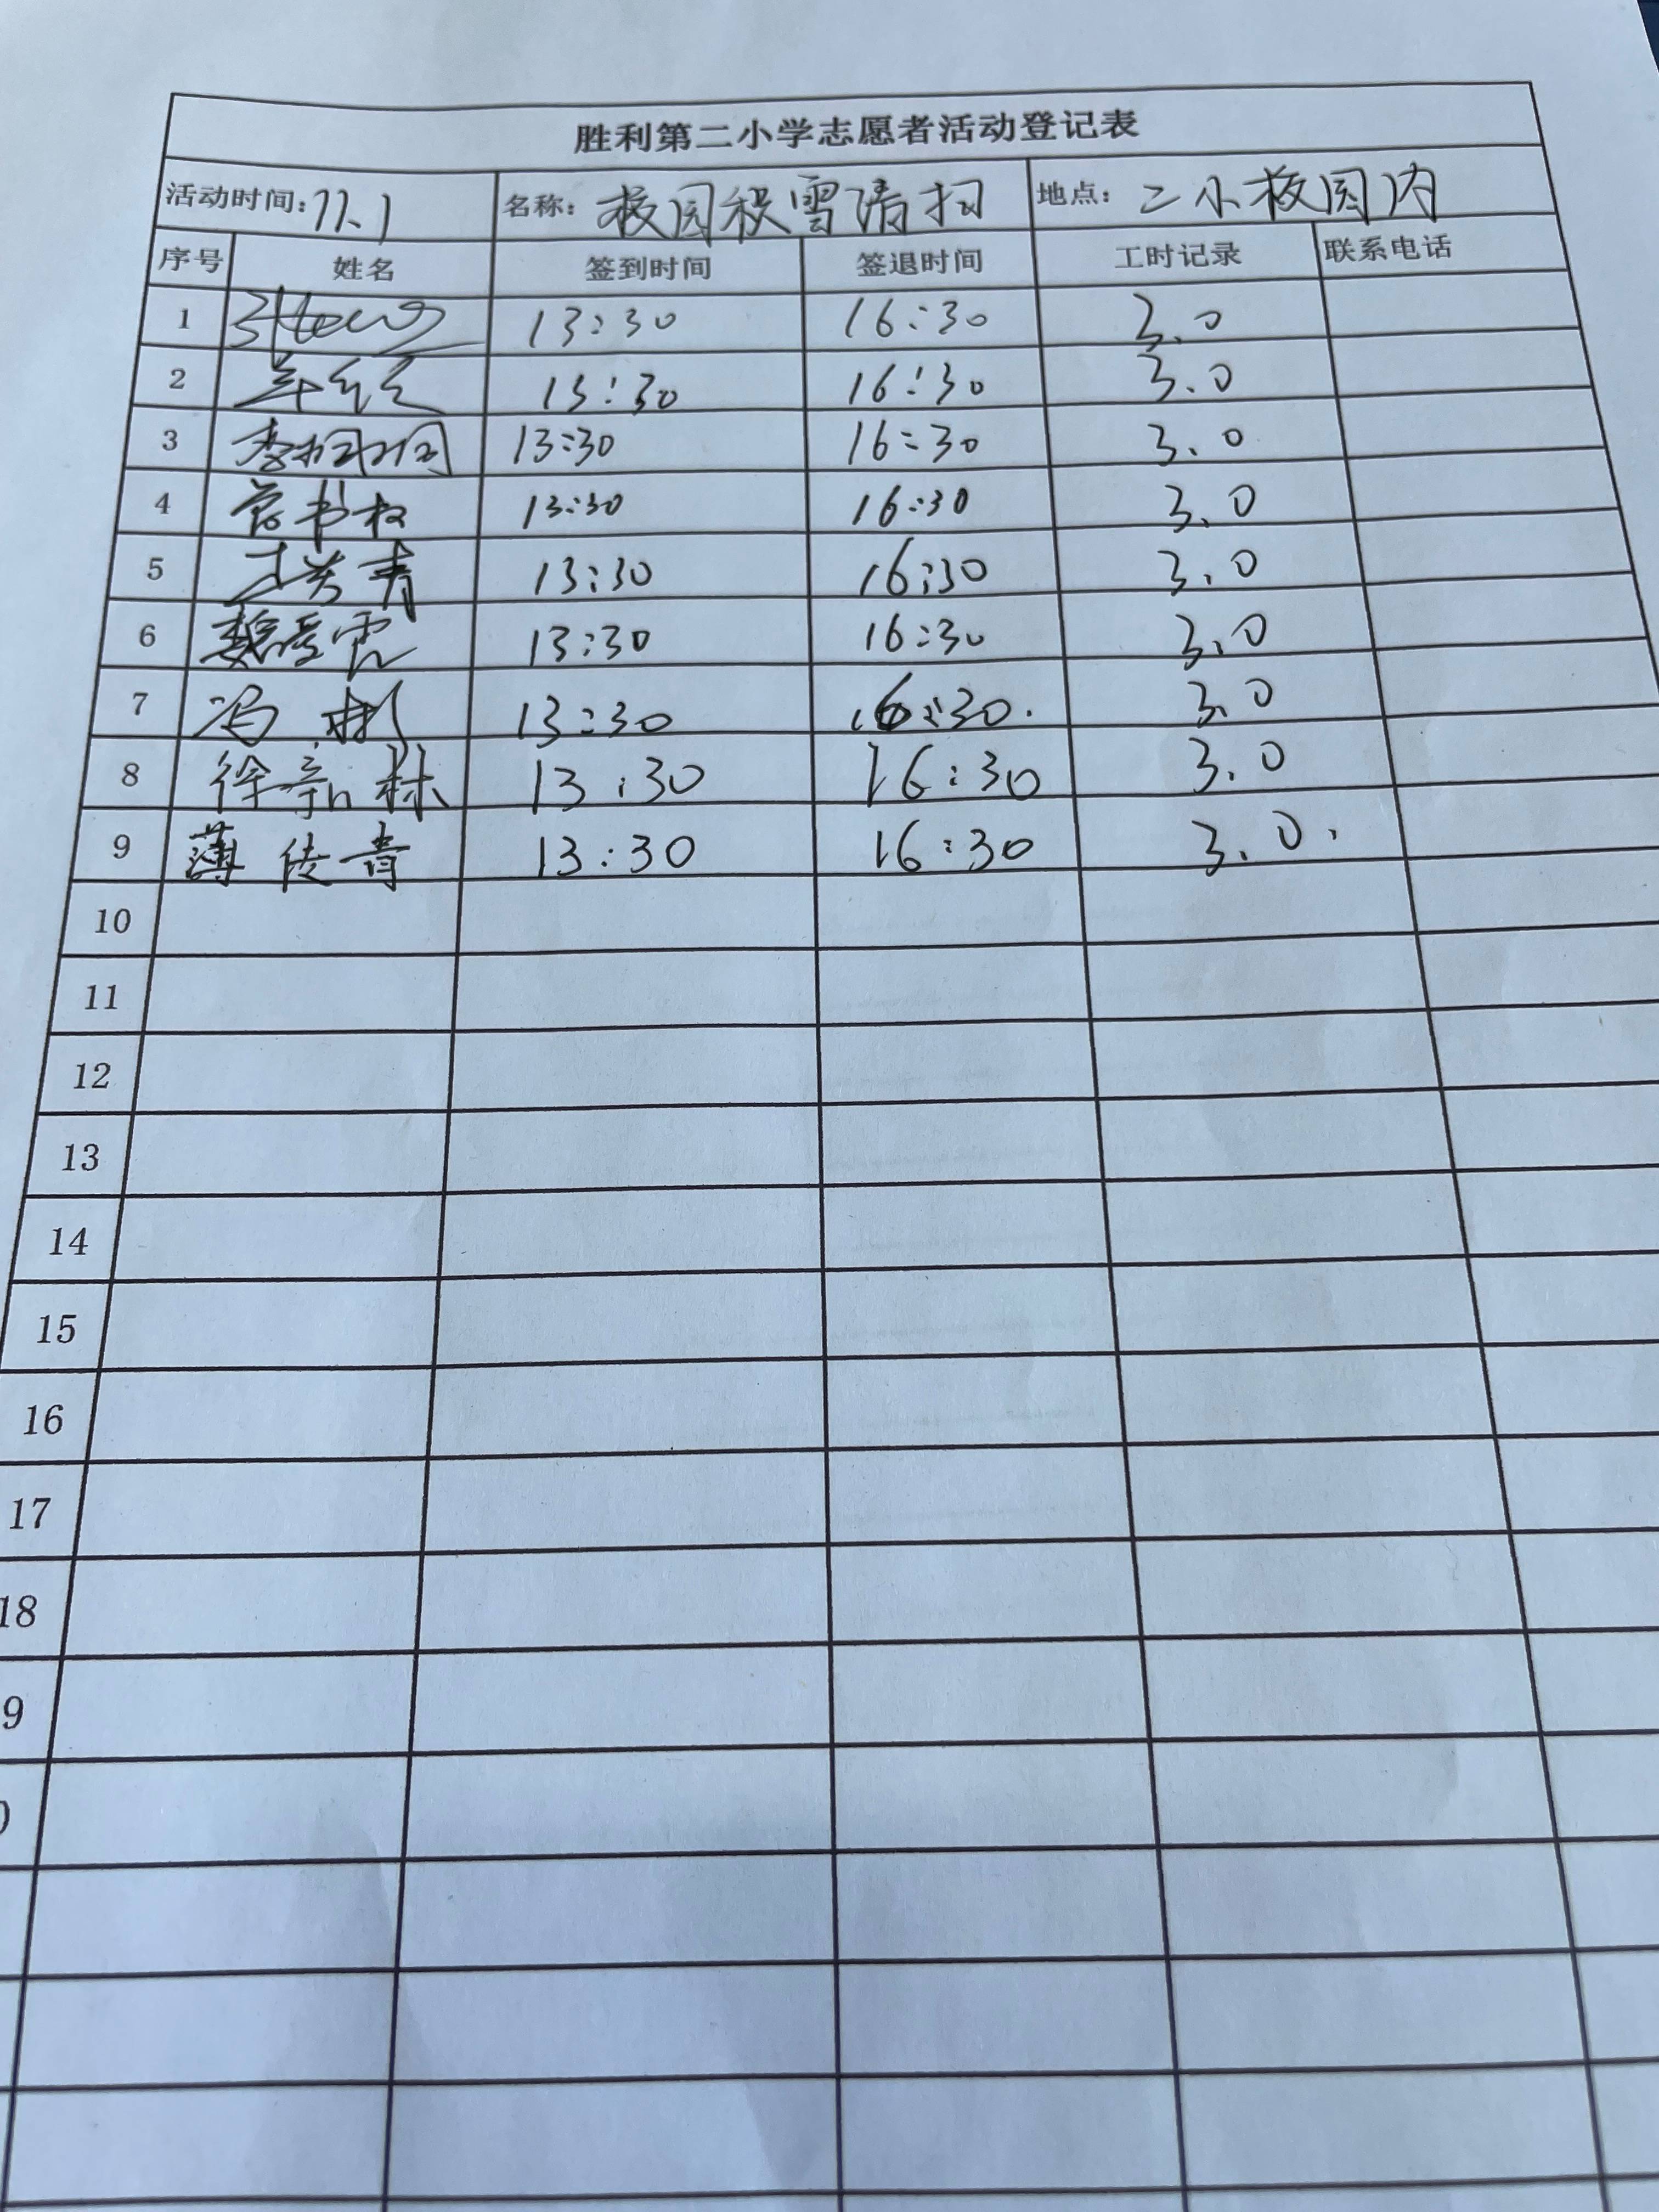 胜利第二小学志愿者活动登记表
活动时间: 11.1 名称: 校园积雪清扫 地点: 二小校园内
序号 姓名 签到时间 签退时间 工时记录 联系电话
1 13:30 16:30 3.0
2 13:30 16:30 3.0
3 13:30 16:30 3.0
4 13:30 16:30 3.0
5 13:30 16:30 3.0
6 13:30 16:30 3.0
7 冯彬 13:30 16:30. 3.0
8 徐新林 13:30 16:30 3.0
9 薄传青 13:30 16:30 3.0.
10
11
12
13
14
15
16
17
18
9
0